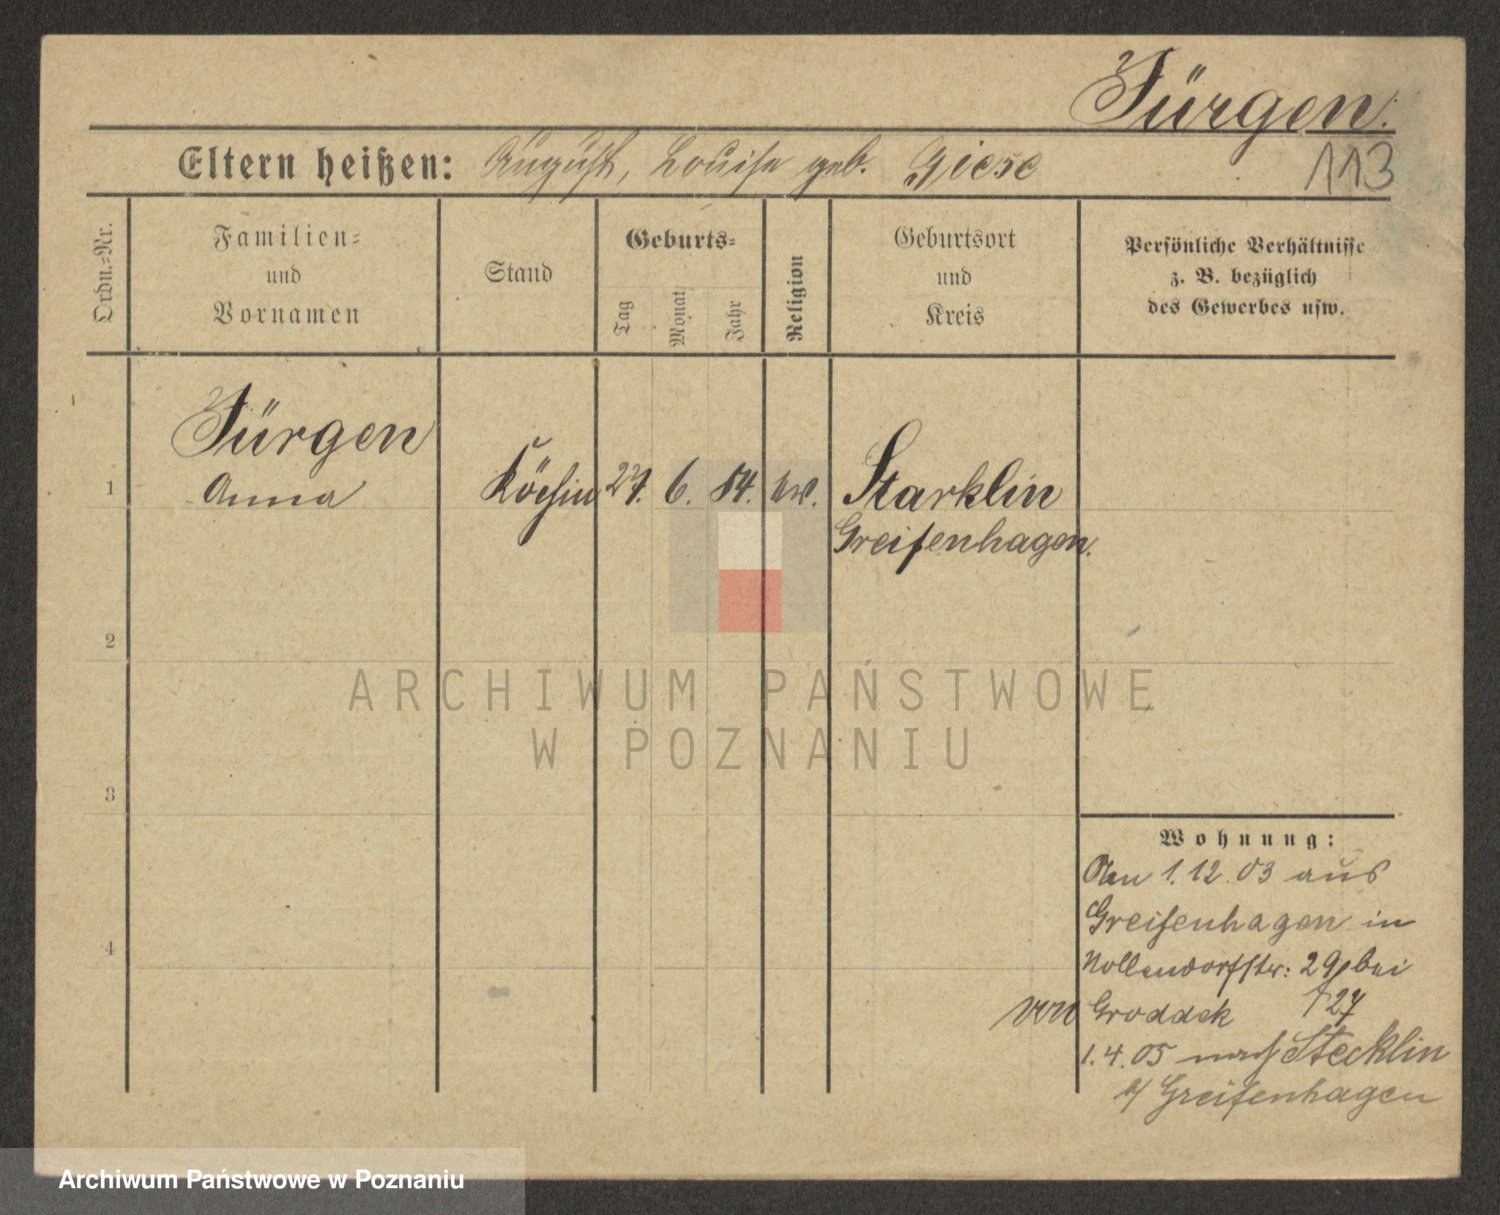 Jürgen.
Eltern heißen: August, Louise geb. Giese
113
Ordn.-Nr.
Familien-
und
Vornamen
Stand
Geburts-
Tag
Monat
Jahr
Religion
Geburtsort
und
Kreis
Persönliche Verhältnisse
z. B. bezüglich
des Gewerbes usw.
Jürgen
1 Anna Köchin 27. 6. 84. ev. Starklin
Greifenhagen.
2
ARCHIWUM PAŃSTWOWE
W POZNANIU
3
Wohnung:
Am 1.12.03 aus
Greifenhagen in
4
Nollendorfstr: 29 bei
von Groddek 27
1.4.05 nach Stecklin
Greifenhagen
Archiwum Państwowe w Poznaniu